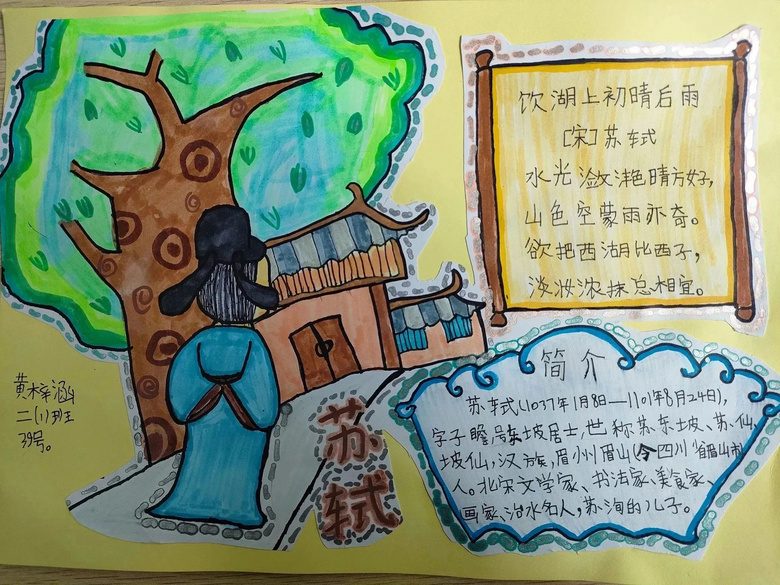 饮湖上初晴后雨
[宋]苏轼
水光潋滟晴方好,
山色空蒙雨亦奇。
欲把西湖比西子,
淡妆浓抹总相宜。
简介
苏轼(1037年1月8日—1101年8月24日),
字子瞻,号东坡居士,世称苏东坡、苏仙、
坡仙,汉族,眉州眉山(今四川省眉山市)
人。北宋文学家、书法家、美食家、
画家、治水名人,苏洵的儿子。
苏
轼
黄梓涵
二(1)班
39号。